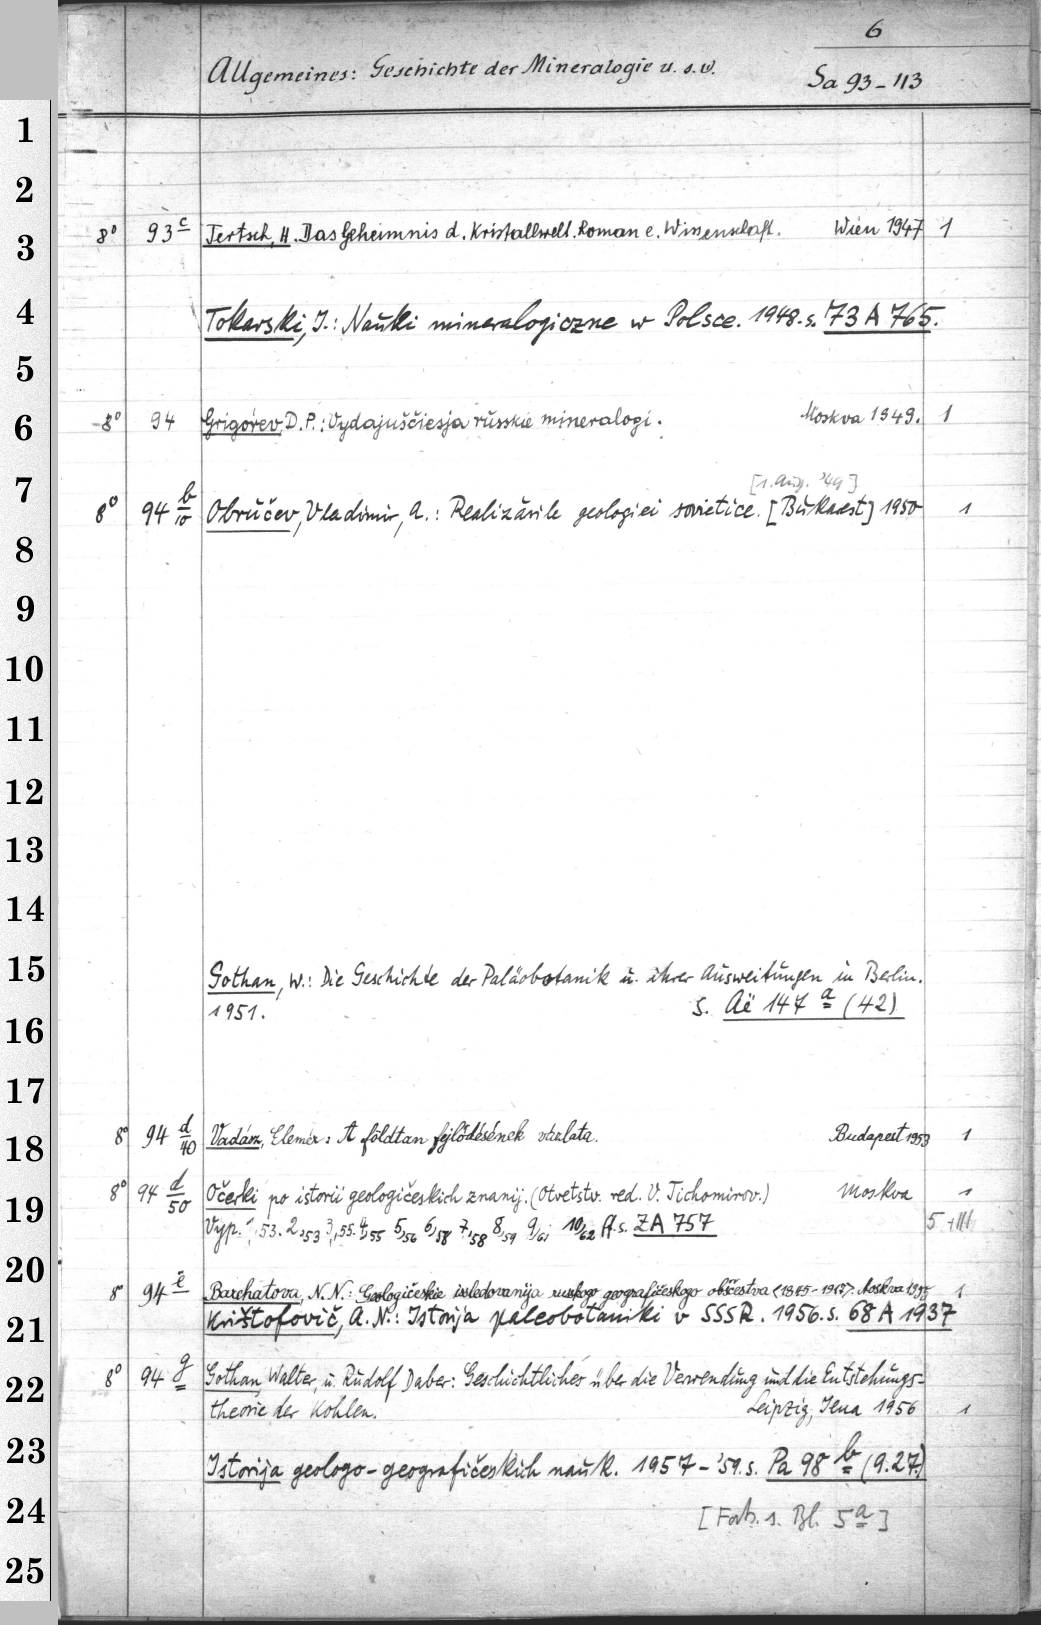 6
Allgemeines: Geschichte der Mineralogie u. s. w.
Sa 93 - 113
1
2
3
8° 93 c Tertsch, H. Das Geheimnis d. Kristallwelt. Roman e. Wissenschaft. Wien 1947 1
4
Tokarski, J.: Nauki mineralogiczne w Polsce. 1948. s. 73 A 765.
5
6
8° 94 Grigór'ev, D. P.: Vydajuščiesja russkie mineralogi. Moskva 1949. 1
7
[1. Aug. '49]
8° 94 b/10 Obručev, Vladimir, A.: Realizările geologiei sovietice. [Bukarest] 1950 1
8
9
10
11
12
13
14
15
Gothan, W.: Die Geschichte der Paläobotanik u. ihrer Ausweitungen in Berlin.
1951. s. Aë 147 a (42)
16
17
18
8° 94 d/40 Vadász, Elemér: A földtan fejlődésének vázlata. Budapest 1953 1
19
8° 94 d/50 Očerki po istorii geologičeskich znanij. (Otvetstv. red. V. Tichomirov.) Moskva 1
Vyp. 1, 53. 2, 53 3, 55. 4, 55 5, 56 6, 58 7, 58 8, 59 9, 61 10, 62 ff. s. ZA 757
20
8° 94 e Barchatova, N. N.: Geologičeskie issledovanija russkogo geografičeskogo obščestva (1845-1917). Moskva 1955 1
21
Krištofovič, A. N.: Istorija paleobotaniki v SSSR. 1956. s. 68 A 1937
22
8° 94 g Gothan, Walter, u. Rudolf Daber: Geschichtliches über die Verwendung und die Entstehungs-
theorie der Kohlen. Leipzig, Jena 1956 1
23
Istorija geologo-geografičeskich nauk. 1957-'59. s. Pa 98 b (9.27)
24
[Forts. s. Bl. 5 a]
25